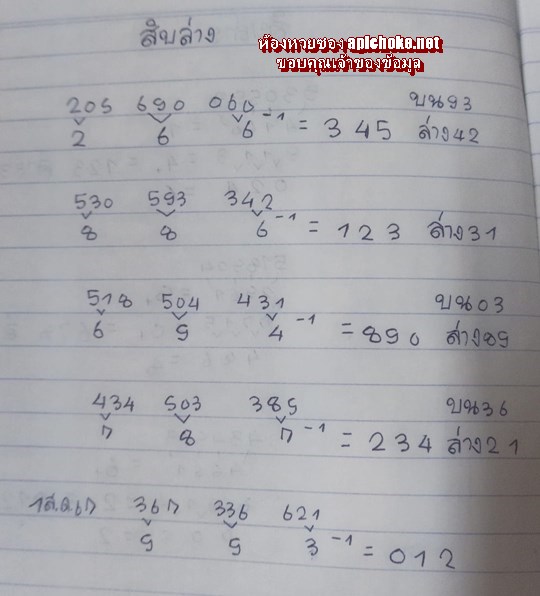 สิบล่าง
ห้องหวยซอง apichoke.net
ขอบคุณเจ้าของข้อมูล
205 690 060 บน93
2 6 6 -1 = 345 ล่าง42
530 593 342
8 8 6 -1 = 123 ล่าง31
518 504 431 บน03
6 9 4 -1 = 890 ล่าง89
434 503 385 บน36
7 8 7 -1 = 234 ล่าง21
1ส.ค67 367 336 621
9 9 3 -1 = 012